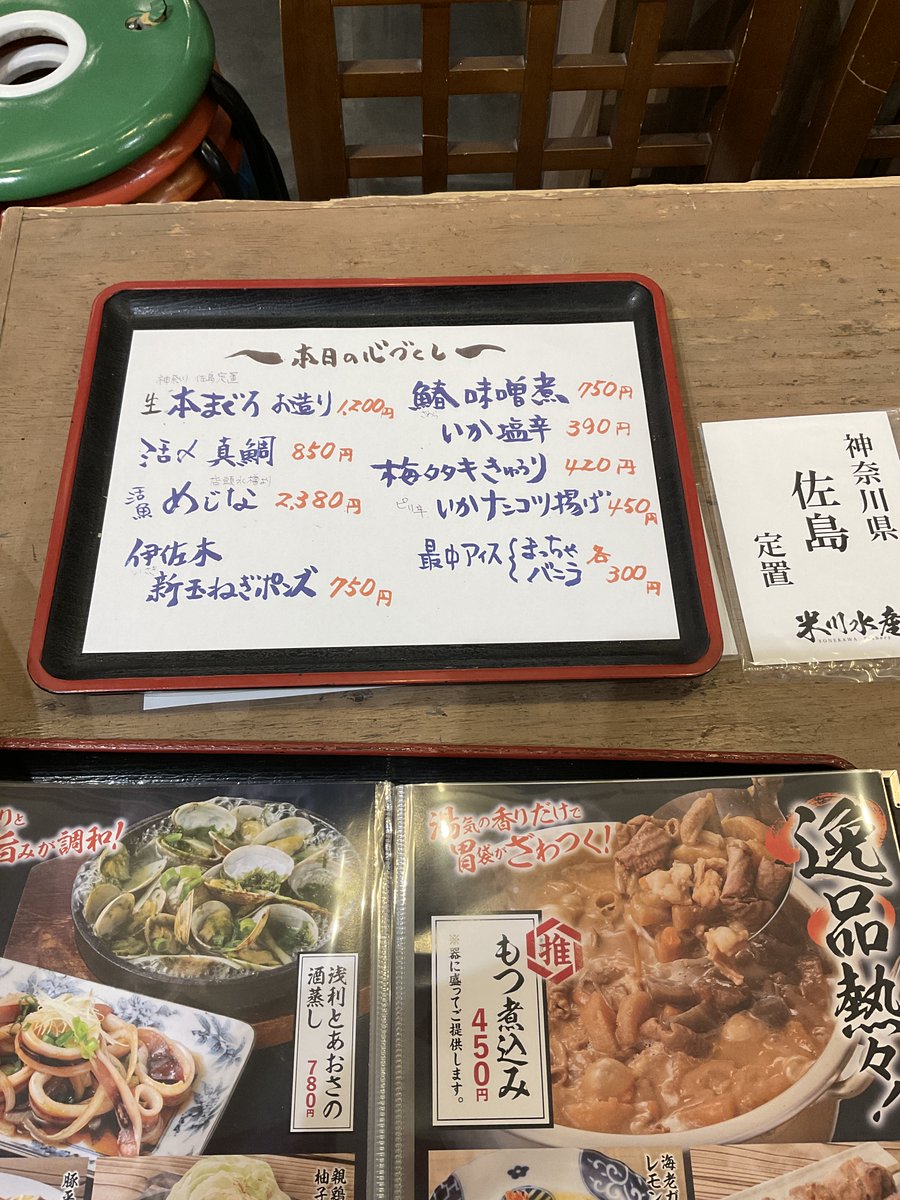 本日の心づくし
神奈川 佐島定置
生 本まぐろ お造り 1,200円
活〆 真鯛 850円
店頭水槽より
活魚 めじな 2,380円
伊佐木
新玉ねぎポンズ 750円
鰆 味噌煮 750円
さわら
いか塩辛 390円
梅タタキきゅうり 420円
ピリ辛 いかナンコツ揚げ 450円
最中アイス { まっちゃ バニラ 各300円
神奈川県
佐島
定置
米川水産
YONEKAWA
旨みが調和!
浅利とあおさの
酒蒸し
780円
湯気の香りだけで
胃袋がざわつく!
逸品熱々!
推
もつ煮込み
450円
※器に盛ってご提供します。
豚平
親鶏
柚子
海老ガ
レモン